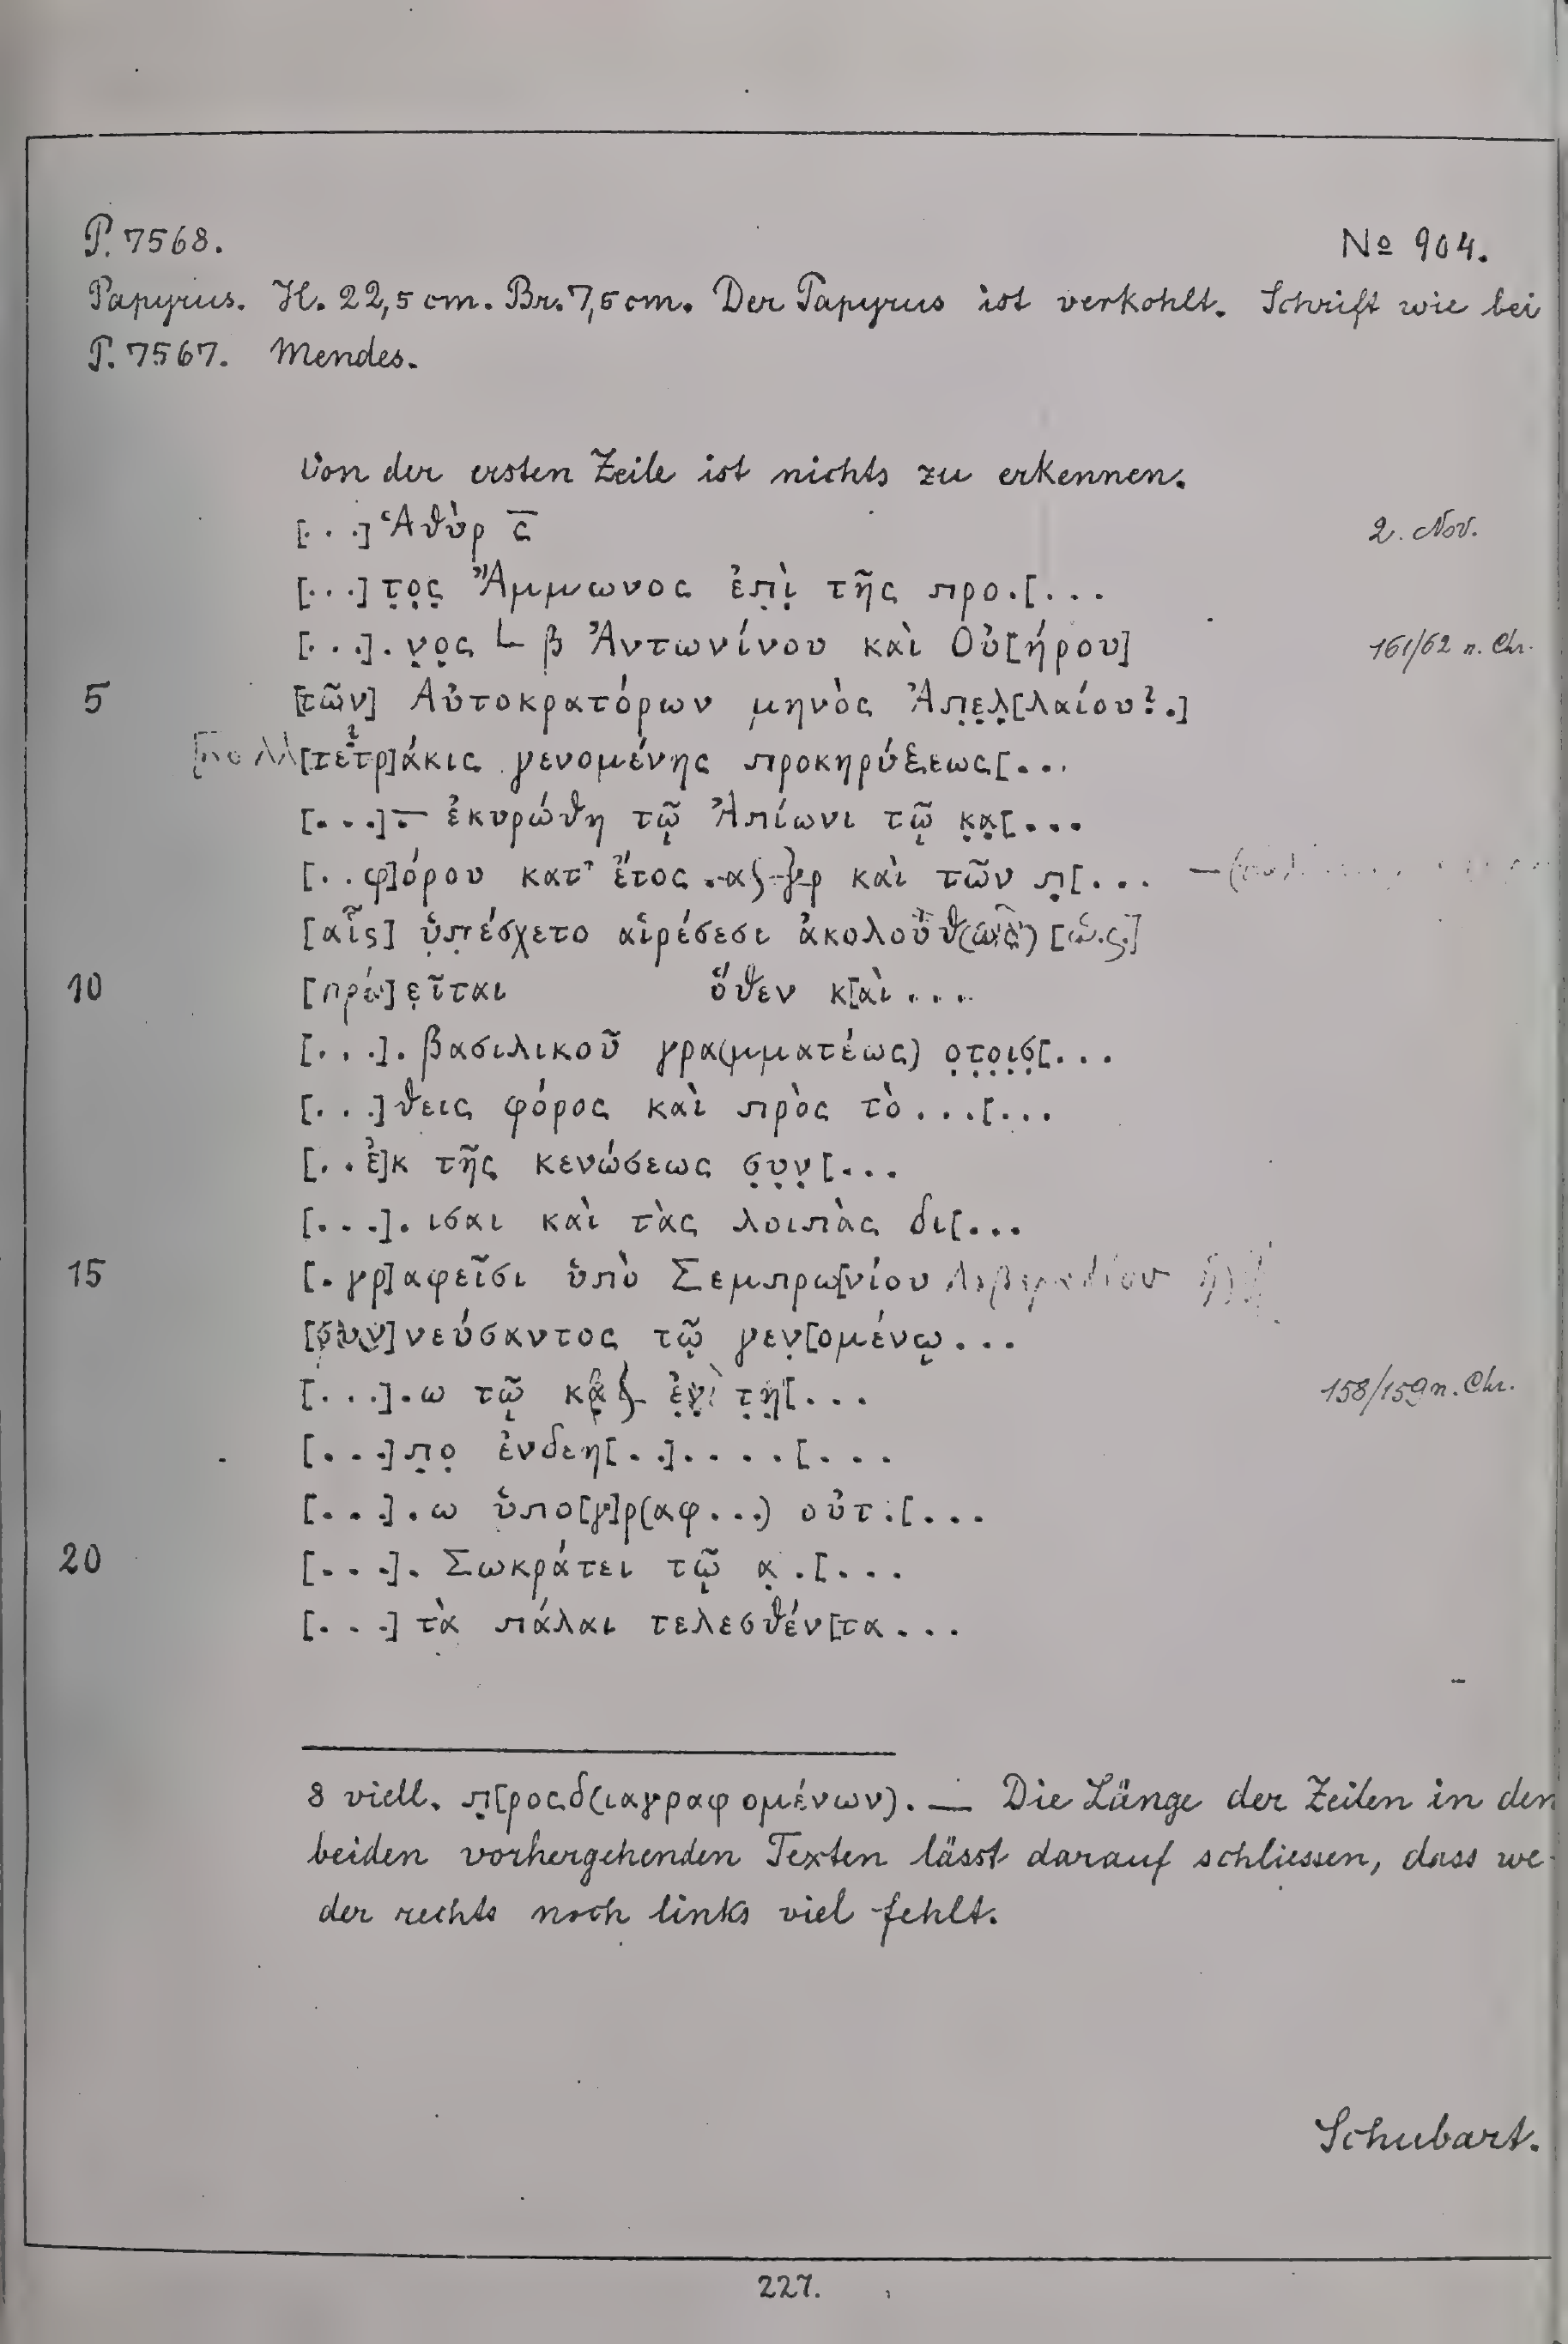 P. 7568.
No 904.
Papyrus. H. 22,5 cm. Br. 7,5 cm. Der Papyrus ist verkohlt. Schrift wie bei
P. 7567. Mendes.
Von der ersten Zeile ist nichts zu erkennen.
[. . .] Ἁθὺρ ς̅ 2. Nov.
[. . .] τ̣ο̣ς̣ Ἄμμωνος ἐπ̣ὶ̣ τῆς προ.[. . .
[. . .]. ν̣ο̣ς L β Ἀντωνίνου καὶ Οὐ[ήρου] 161/62 n. Chr.
5 [τῶν] Αὐτοκρατόρων μηνὸς Ἀπ̣ε̣λ̣[λαίου?.]
[τετρ]άκις γενομένης προκηρύξεως[. . .
[. . .].— ἐκυρώθη τῷ Ἀπίωνι τῷ κ̣α̣[. . .
[. . φ]όρου κατ' ἔτος καὶ τῶν π̣[. . .
[αἷς] ὑ̣π̣έσχετο αἱρέσεσι ἀκολούθ(ως) [ὡ.ς.]
10 [πρό]ε̣ῖται ὅθεν κ[αὶ . . . .
[. . .]. βασιλικοῦ γρα(μματέως) ο̣τ̣ο̣ι̣σ̣[. . .
[. . .]θεις φόρος καὶ πρὸς τὸ . . .[. . .
[. . ἐ]κ τῆς κενώσεως σ̣υ̣ν̣[. . .
[. . .]. ισαι καὶ τὰς λοιπὰς δι[. . .
15 [. γρ]αφεῖσι ὑπὸ Σεμπρω[νίου
[συν]νεύσαντος τῷ γεν̣[ομένῳ . . .
[. . .].ω τῷ κβ ἐν̣ τ̣η̣[. . . 158/159 n. Chr.
[. . .]π̣ο̣ ἐνδεη[. .]. . . . [. . .
[. . .].ω ὑπο[γ]ρ(αφ. . .) οὐτ.[. . .
20 [. . .]. Σωκράτει τῷ α̣.[. . .
[. . .] τὰ πάλαι τελεσθέν[τα . . .
8 viell. π̣[ροςδ(ιαγραφομένων). — Die Länge der Zeilen in den
beiden vorhergehenden Texten lässt darauf schliessen, dass we-
der rechts noch links viel fehlt.
Schubart.
227.